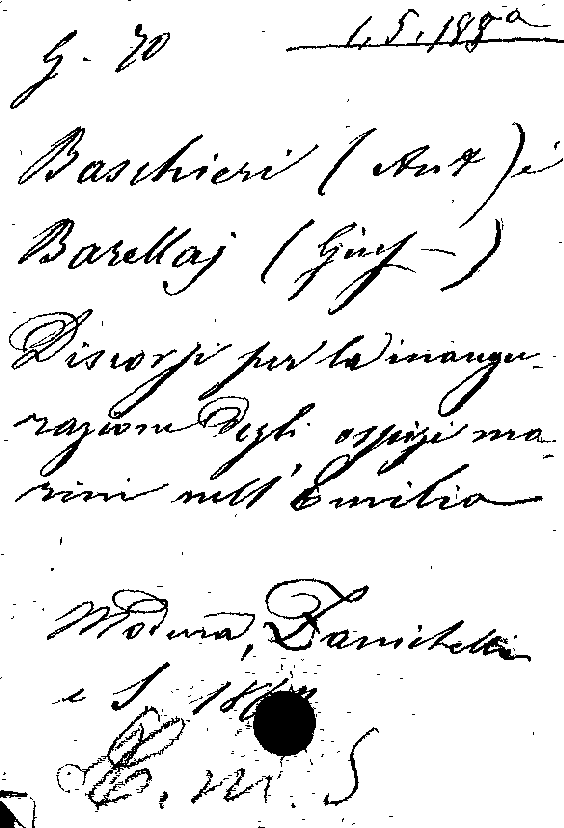 G. 70
1.5.188a
Baschieri (Ant) e
Barellaj (Giuf—)
Discorsi per la inaugu-
razione degli ospizi ma-
rini nell'Emilia
Modena,
e S. 18